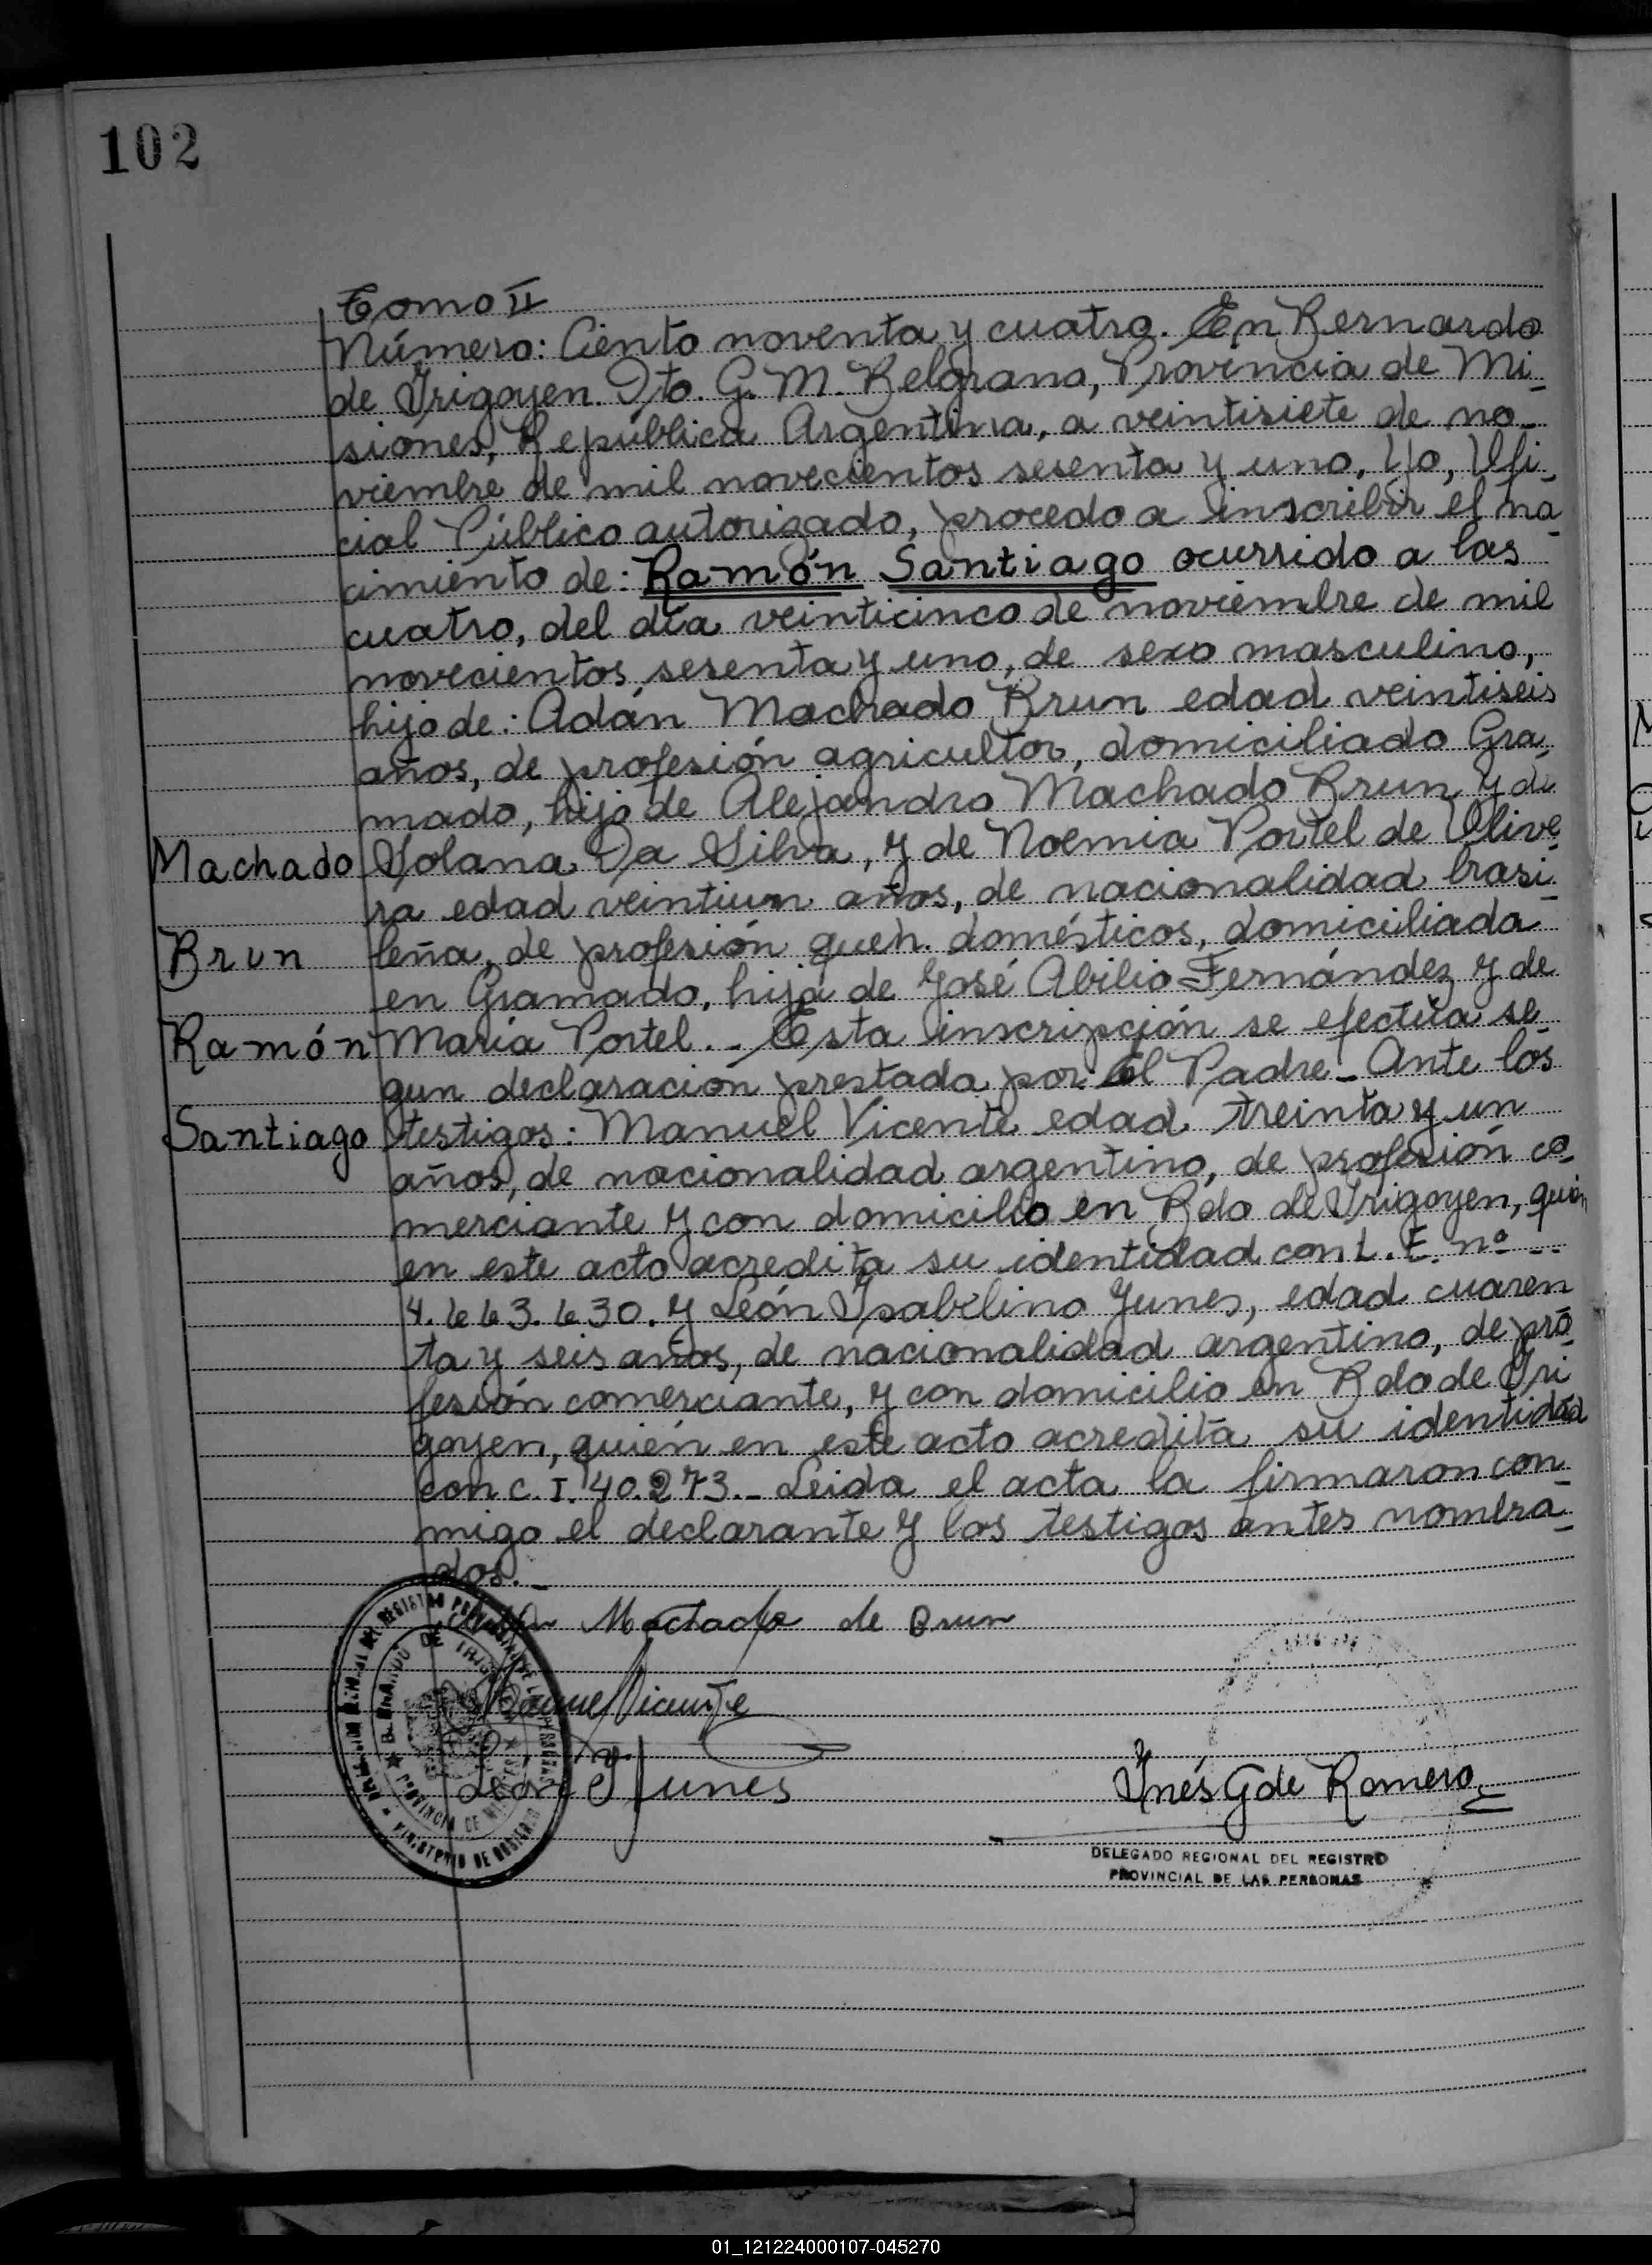 102
Tomo II
Número: Ciento noventa y cuatro. En Bernardo
de Irigoyen. Dto. G. M. Belgrano, Provincia de Mi-
siones, República Argentina, a veintisiete de no-
viembre de mil novecientos sesenta y uno, Yo, Ofi-
cial Público autorizado, procedo a inscribir el na-
cimiento de: Ramón Santiago ocurrido a las
cuatro, del día veinticinco de noviembre de mil
novecientos sesenta y uno, de sexo masculino,
hijo de: Adán Machado Brun edad veintiseis
años, de profesión agricultor, domiciliado Gra-
mado, hijo de Alejandro Machado Brun y de
Machado
Iolana Da Silva, y de Noemia Portel de Olive-
ra edad veintiun años, de nacionalidad brasi-
Brun
leña, de profesión queh. domésticos, domiciliada
en Gramado, hija de José Abilio Fernández y de
Ramón
María Portel. - Esta inscripción se efectúa se-
gun declaración prestada por: el Padre - Ante los
Santiago
testigos: Manuel Vicente edad treinta y un
años, de nacionalidad argentino, de profesión co-
merciante y con domicilio en Bdo de Irigoyen, quién
en este acto acredita su identidad con L. E. nº --
4.663.630. y León Isabelino Junes, edad cuaren
ta y seis años, de nacionalidad argentino, de pro-
fesión comerciante, y con domicilio en Bdo de Iri
goyen, quién en este acto acredita su identidad
con C. I. 40.273. - Leida el acta la firmaron con-
migo el declarante y los testigos antes nombra-
dos. -
Machado de Brun
Manuel Vicente
León I Junes
Inés G de Romero
DELEGADO REGIONAL DEL REGISTRO
PROVINCIAL DE LAS PERSONAS
01_121224000107-045270